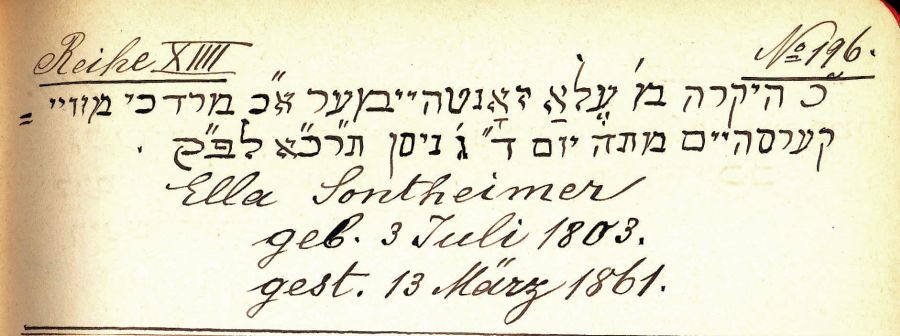 Reihe XIIII № 196.
כ״ היקרה מ׳ עלאַ זאָנטהיימער א״כ מרדכי מוויי=
קערסהיים מתה יום ד״ ג׳ ניסן תרכ״א לפ״ק .
Ella Sontheimer
geb. 3 Juli 1803.
gest. 13 März 1861.